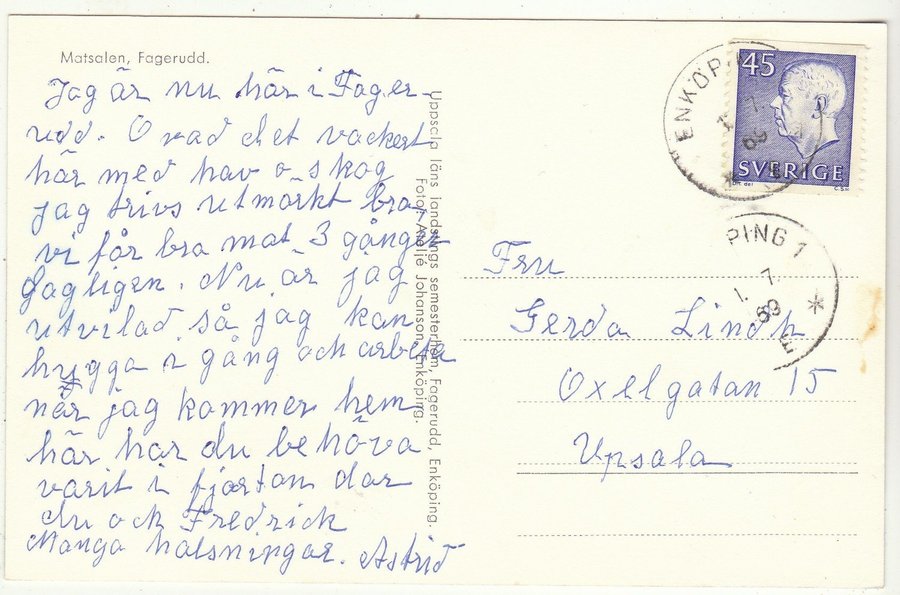 Matsalen, Fagerudd.
Jag är nu här i Fager-
udd. O vad det vackert
här med hav o skog
jag trivs utmärkt bra,
vi får bra mat 3 gånger
dagligen. Nu är jag
utvilad så jag kan
hygga i gång och arbeta
når jag kommer hem
här har du behöva
varit i fjorton dar
du och Fredrick
Manga halsningar. Astrid
Uppsala läns landstings semesterhem, Fagerudd, Enköping.
Foto: Ateljé Johanson, Enköping.
45
SVERIGE
ENKÖP
1. 7.
69
PING 1
1. 7.
69
Fru
Gerda Lindh
Oxelgatan 15
Upsala